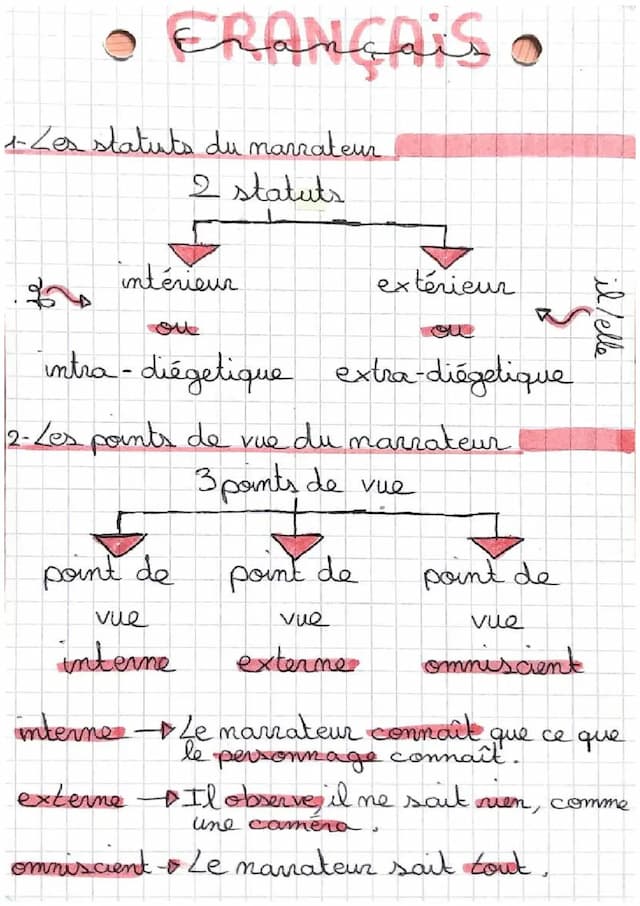 FRANÇAIS
Français
1-Les statuts du narrateur
2 statuts
intérieur
extérieur
il/elle
ou
ou
intra-diégetique
extra-diégetique
2-Les points de vue du narrateur
3 points de vue
point de
point de
point de
vue
vue
vue
interne
externe
omniscient
interne → Le narrateur connaît que ce que
le personnage connaît.
externe → Il observe, il ne sait rien, comme
une caméra.
omniscient → Le narrateur sait tout.